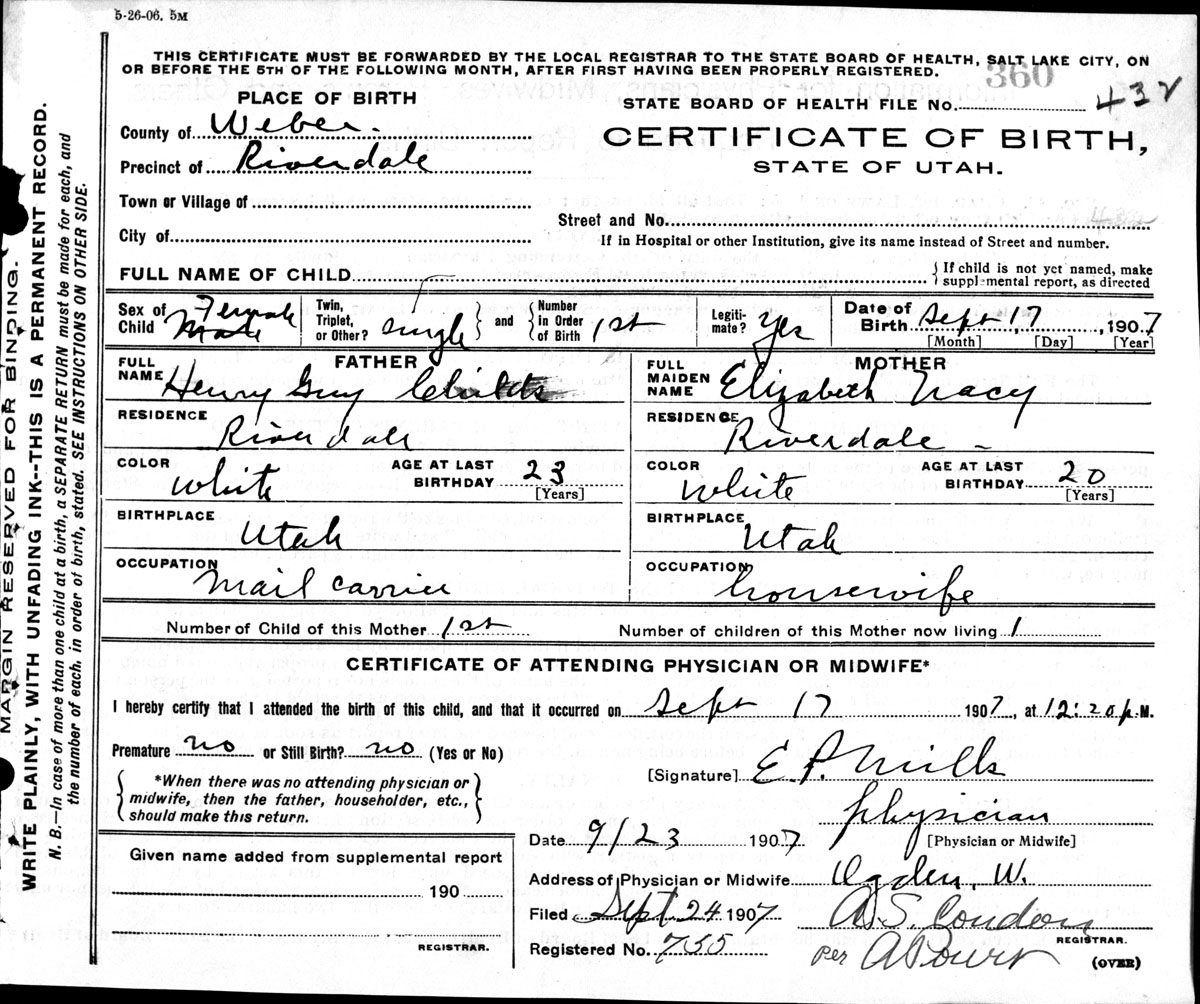 5-26-06. 5M
THIS CERTIFICATE MUST BE FORWARDED BY THE LOCAL REGISTRAR TO THE STATE BOARD OF HEALTH, SALT LAKE CITY, ON
OR BEFORE THE 5TH OF THE FOLLOWING MONTH, AFTER FIRST HAVING BEEN PROPERLY REGISTERED.
360
PLACE OF BIRTH
STATE BOARD OF HEALTH FILE NO. 432
County of Weber.
CERTIFICATE OF BIRTH,
Precinct of Riverdale
STATE OF UTAH.
Town or Village of
Street and No. 432
City of
If in Hospital or other Institution, give its name instead of Street and number.
FULL NAME OF CHILD
{ If child is not yet named, make
supplemental report, as directed
Sex of Child Female Male
Twin, Triplet, or Other? single } and { Number in Order of Birth 1st
Legitimate? Yes
Date of Birth Sept 17, 1907
[Month] [Day] [Year]
FATHER
FULL NAME Henry Guy Childs
MOTHER
FULL MAIDEN NAME Elizabeth Tracy
RESIDENCE Riverdale
RESIDENCE Riverdale -
COLOR White AGE AT LAST BIRTHDAY 23 [Years]
COLOR White AGE AT LAST BIRTHDAY 20 [Years]
BIRTHPLACE Utah
BIRTHPLACE Utah
OCCUPATION Mail carrier
OCCUPATION housewife
Number of Child of this Mother 1st Number of children of this Mother now living 1
CERTIFICATE OF ATTENDING PHYSICIAN OR MIDWIFE*
I hereby certify that I attended the birth of this child, and that it occurred on Sept 17 1907, at 12:20 p.M.
Premature no or Still Birth? no (Yes or No)
{ *When there was no attending physician or
midwife, then the father, householder, etc.,
should make this return. }
[Signature] E. P. Mills
physician
[Physician or Midwife]
Date 9/23 1907
Given name added from supplemental report
190
REGISTRAR.
Address of Physician or Midwife Ogden, W.
Filed Sept 24 1907 A.S. Condon
REGISTRAR.
Registered No. 735 per
(OVER)
MARGIN RESERVED FOR BINDING.
WRITE PLAINLY, WITH UNFADING INK--THIS IS A PERMANENT RECORD.
N. B.—In case of more than one child at a birth, a SEPARATE RETURN must be made for each, and
the number of each, in order of birth, stated. SEE INSTRUCTIONS ON OTHER SIDE.